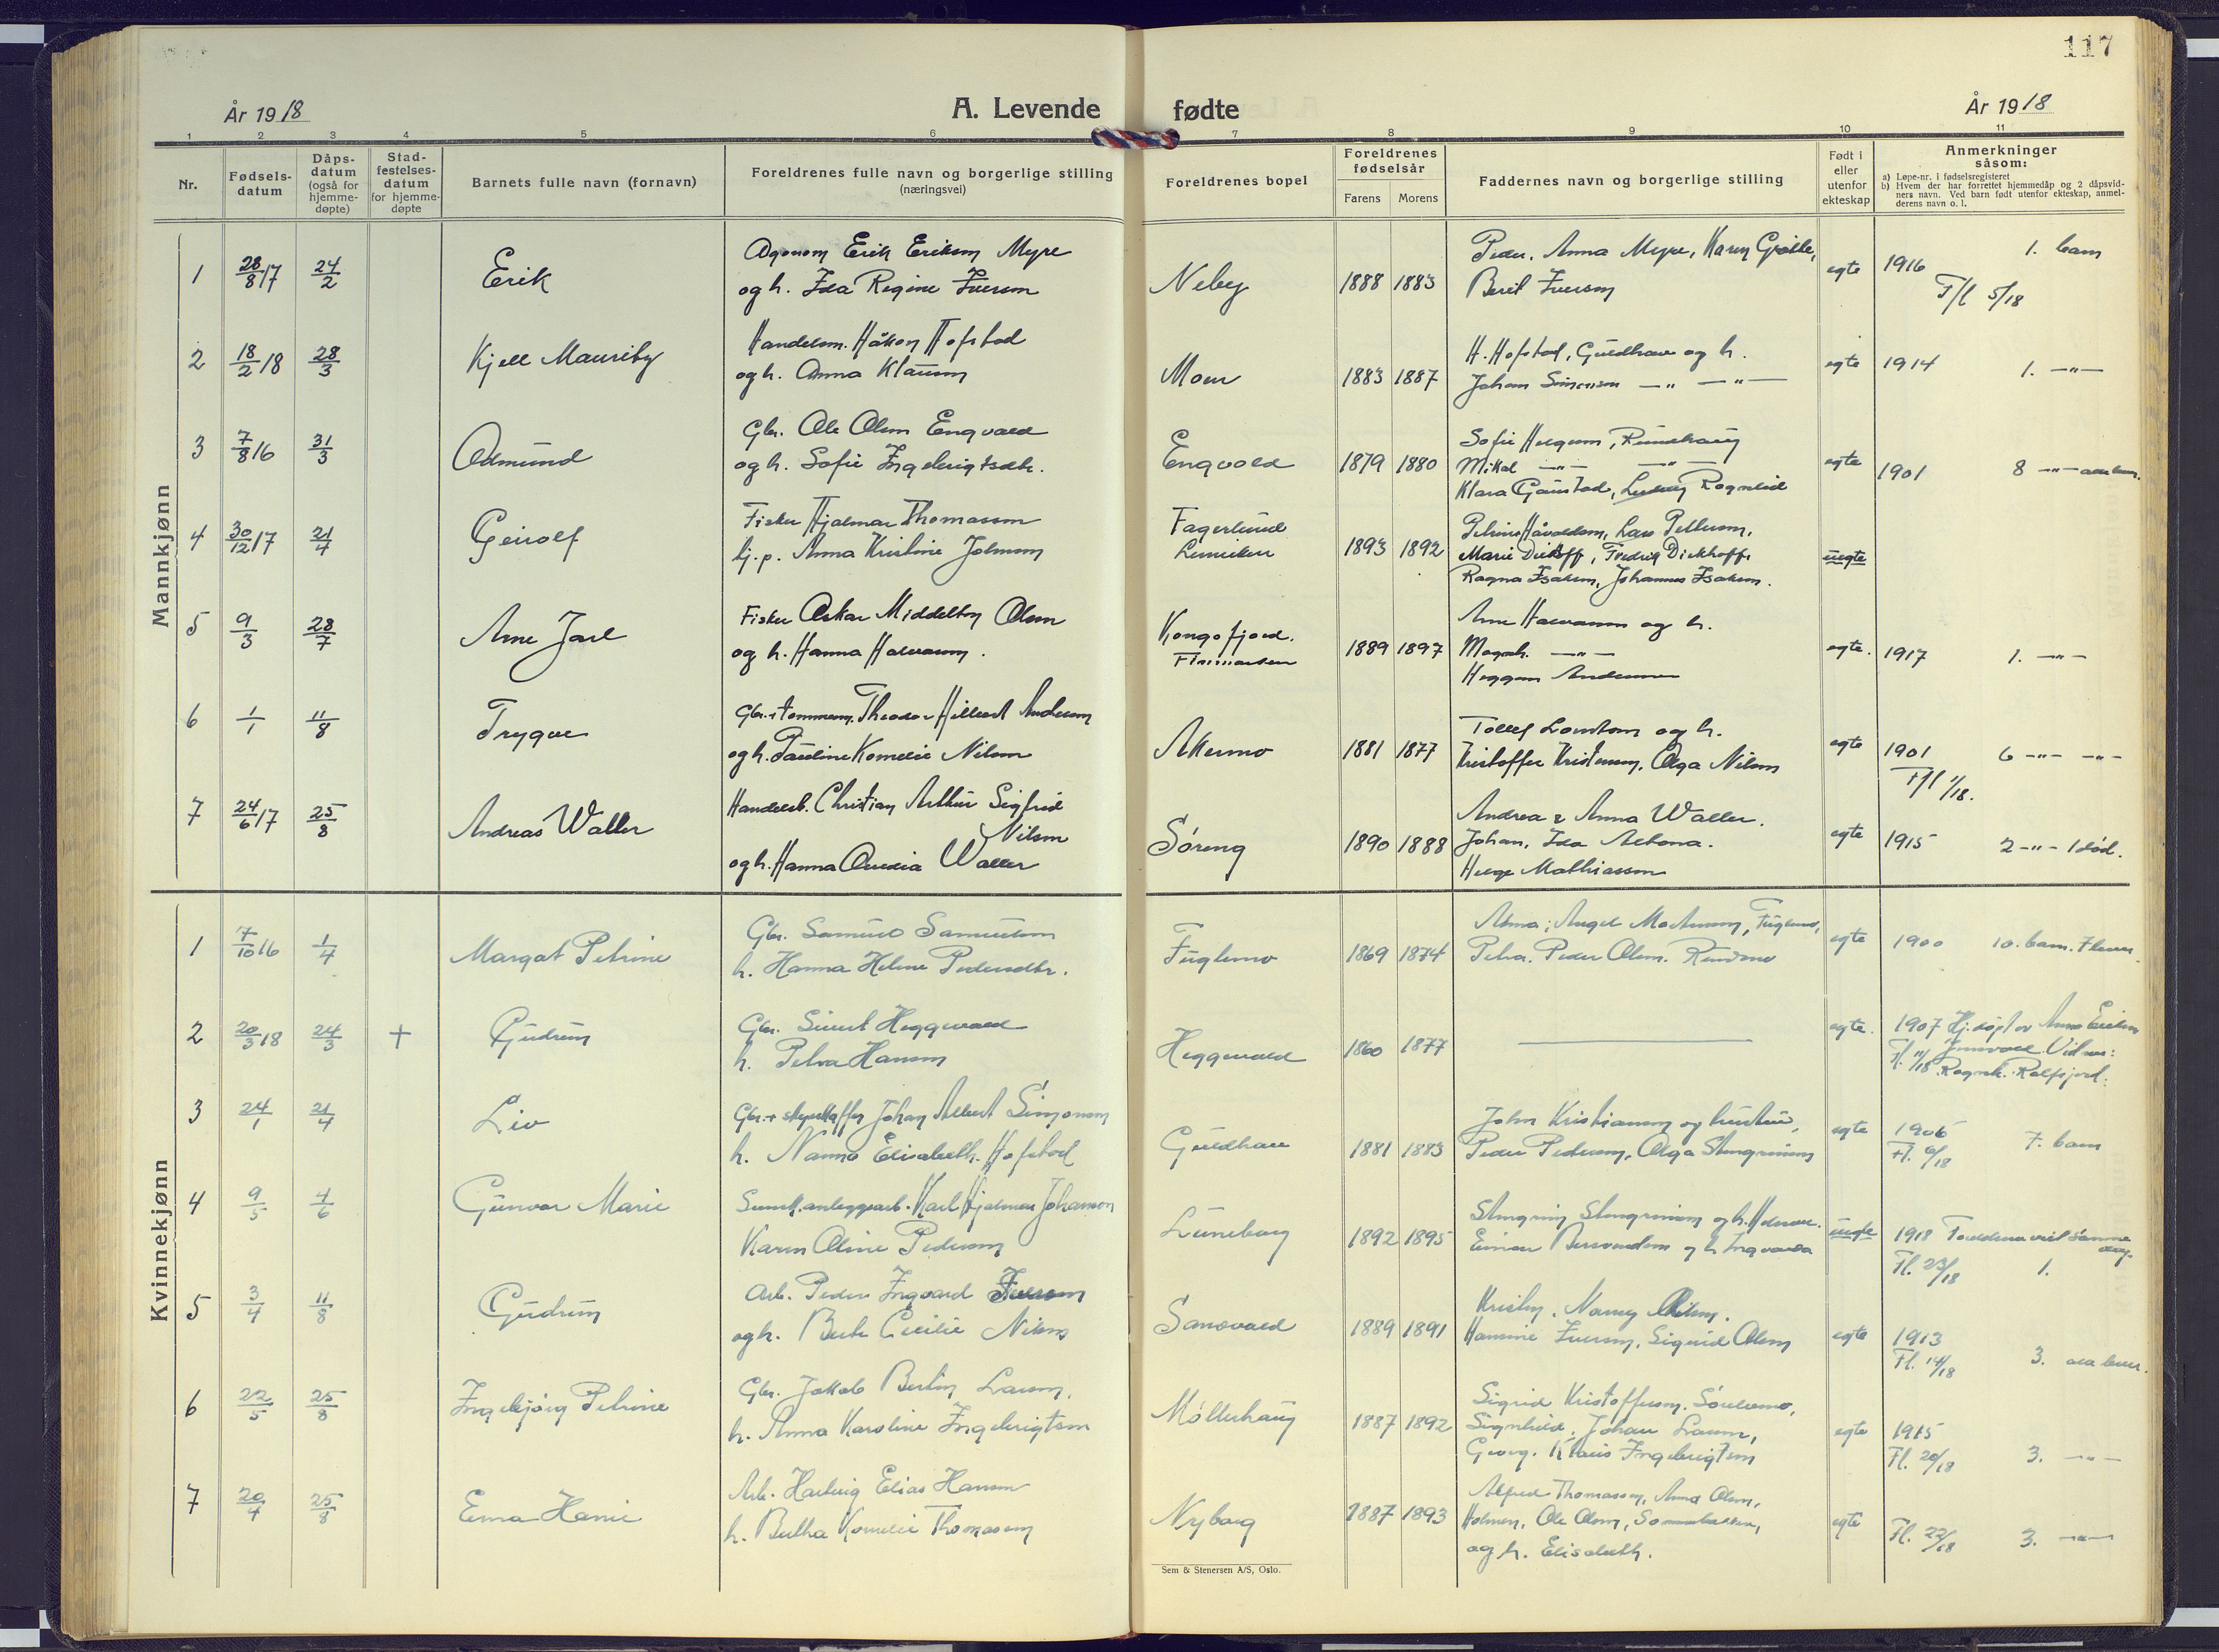 117
År 1918
A. Levende fødte
År 1918
1 2 3 4 5 6 7 8 9 10 11
Nr.
Fødsels-
datum
Dåps-
datum
(også for
hjemme-
døpte)
Stad-
festelses-
datum
for hjemme-
døpte
Barnets fulle navn (fornavn)
Foreldrenes fulle navn og borgerlige stilling
(næringsvei)
Foreldrenes bopel
Foreldrenes
fødselsår
Farens Morens
Faddernes navn og borgerlige stilling
Født i
eller
utenfor
ekteskap
Anmerkninger
såsom:
a) Løpe-nr. i fødselsregisteret
b) Hvem der har forrettet hjemmedåp og 2 dåpsvid-
ners navn. Ved barn født utenfor ekteskap, anmel-
derens navn o. l.
Mannkjønn
1 28/8 17 24/2 Erik
Erik Eriksen Myre
og h. Ida Regine Iversen
Neby 1888 1883
Peder, Anna Myre, Karen
Berit Iversen
egte 1916 1. barn
F/l 5/18
2 18/2 18 28/3 Kjell
Handelsm. Håkon Hofstad
og h. Anna Klausen
Moen 1883 1887
H. Hofstad, Guldhav og h.
Johan Simonsen — " — " —
egte 1914 1. — " —
3 7/8 16 31/3 Odmund
Gbr. Ole Olsen Engvold
og h. Sofie Ingebrigtsdtr.
Engvold 1879 1880
Sofie
Mikal — " — — " —
Klara Gaustad, Ludvig
egte 1901 8 — " —
4 30/12 17 21/4 Geirolf
Fisker Hjalmar Thomassen
tj.p. Anna Kristine Johnsen
Fagerlund
1893 1892
Petrine Håvaldsen, Lars Pettersen,
Marie Dickhoff, Fredrik Dickhoff,
Ragna Isaksen, Johannes Isaksen.
uegte
5 9/3 28/7 Arne Jarl
Fisker Oskar Middelton Olsen
og h. Hanna Halvorsen.
Kongsfjord.
Finmarken
1889 1897
Arne Halvorsen og h.
— " —
Andersen
egte. 1917 1. — " —
6 1/1 11/8 Trygve
Gbr. + tømmerm. Theodor Hilbert Andersen
og h. Pauline Kornelie Nilsen
Akermo 1881 1877
Tollef og h.
Kristoffer Kristensen, Olga Nilsen
egte 1901 6 — " — — " —
F/l 1/18.
7 24/6 17 25/8 Andreas Waller
Handelsb. Christian Arthur Sigfrid
Nilsen
og h. Hanna Waller
Søreng 1890 1888
Andrea & Anna Waller.
Johan, Ida
Helge Mathiassen
egte 1915 2 — " — 1 død.
Kvinnekjønn
1 7/10 16 1/4 Margot Petrine
Gbr. Samuel Samuelsen
h. Hanna Helene Pedersdtr.
Fuglemo 1869 1874
Petra. Peder Olsen.
egte 1900 10. barn.
2 20/3 18 24/3 + Gudrun
Gbr. Sivert Heggevold
h. Petra Hansen
Heggevold 1860 1877
egte. 1907 Hj. døpt av
Fl. 11/18
3 24/1 21/4 Liv
Gbr. + skysskaffer Johan Albert Simonsen
h. Nanna Elisabeth Hofstad
Guldhav 1881 1883
John Kristiansen og hustru,
Peder Pedersen, Olga Stengrimsen
egte 1906 7. barn
Fl. 6/18
4 9/5 4/6 Gunvor Marie
Karl Hjalmar Johanson
Karen Oline Pedersen
Luneborg 1892 1895
Stengrim Stengrimsen og h.
Einar og h. Ingvarda
uegte 1918 Foreldrene
Fl. 23/18 1.
5 3/4 11/8 Gudrun
Arb. Peder Ingvard Iversen
og h. Berte Cecilie Nilsen
Sandvold 1889 1891
Nilsen.
Hansine Iversen, Sigrid Olsen
egte 1913
Fl. 14/18 3.
6 22/5 25/8 Ingebjørg Petrine
Gbr. Jakob Bertin Larsen,
h. Anna Karoline Ingebrigtsen
Møllerhaug 1887 1892
Sigrid Kristoffersen,
Signhild, Johan Larsen,
Georg. Klaus Ingebrigtsen
egte 1915
Fl. 20/18 3. — " —
7 20/4 25/8 Erna
Arb. Hartvig Elias Hansen
h. Bertha Kornelie Thomassen
Nyborg 1887 1893
Alfred Thomassen, Anna Olsen,
Holmen, Ole Olsen,
og h. Elisabeth.
egte
Fl. 22/18 3. — " —
Sem & Stenersen A/S, Oslo.